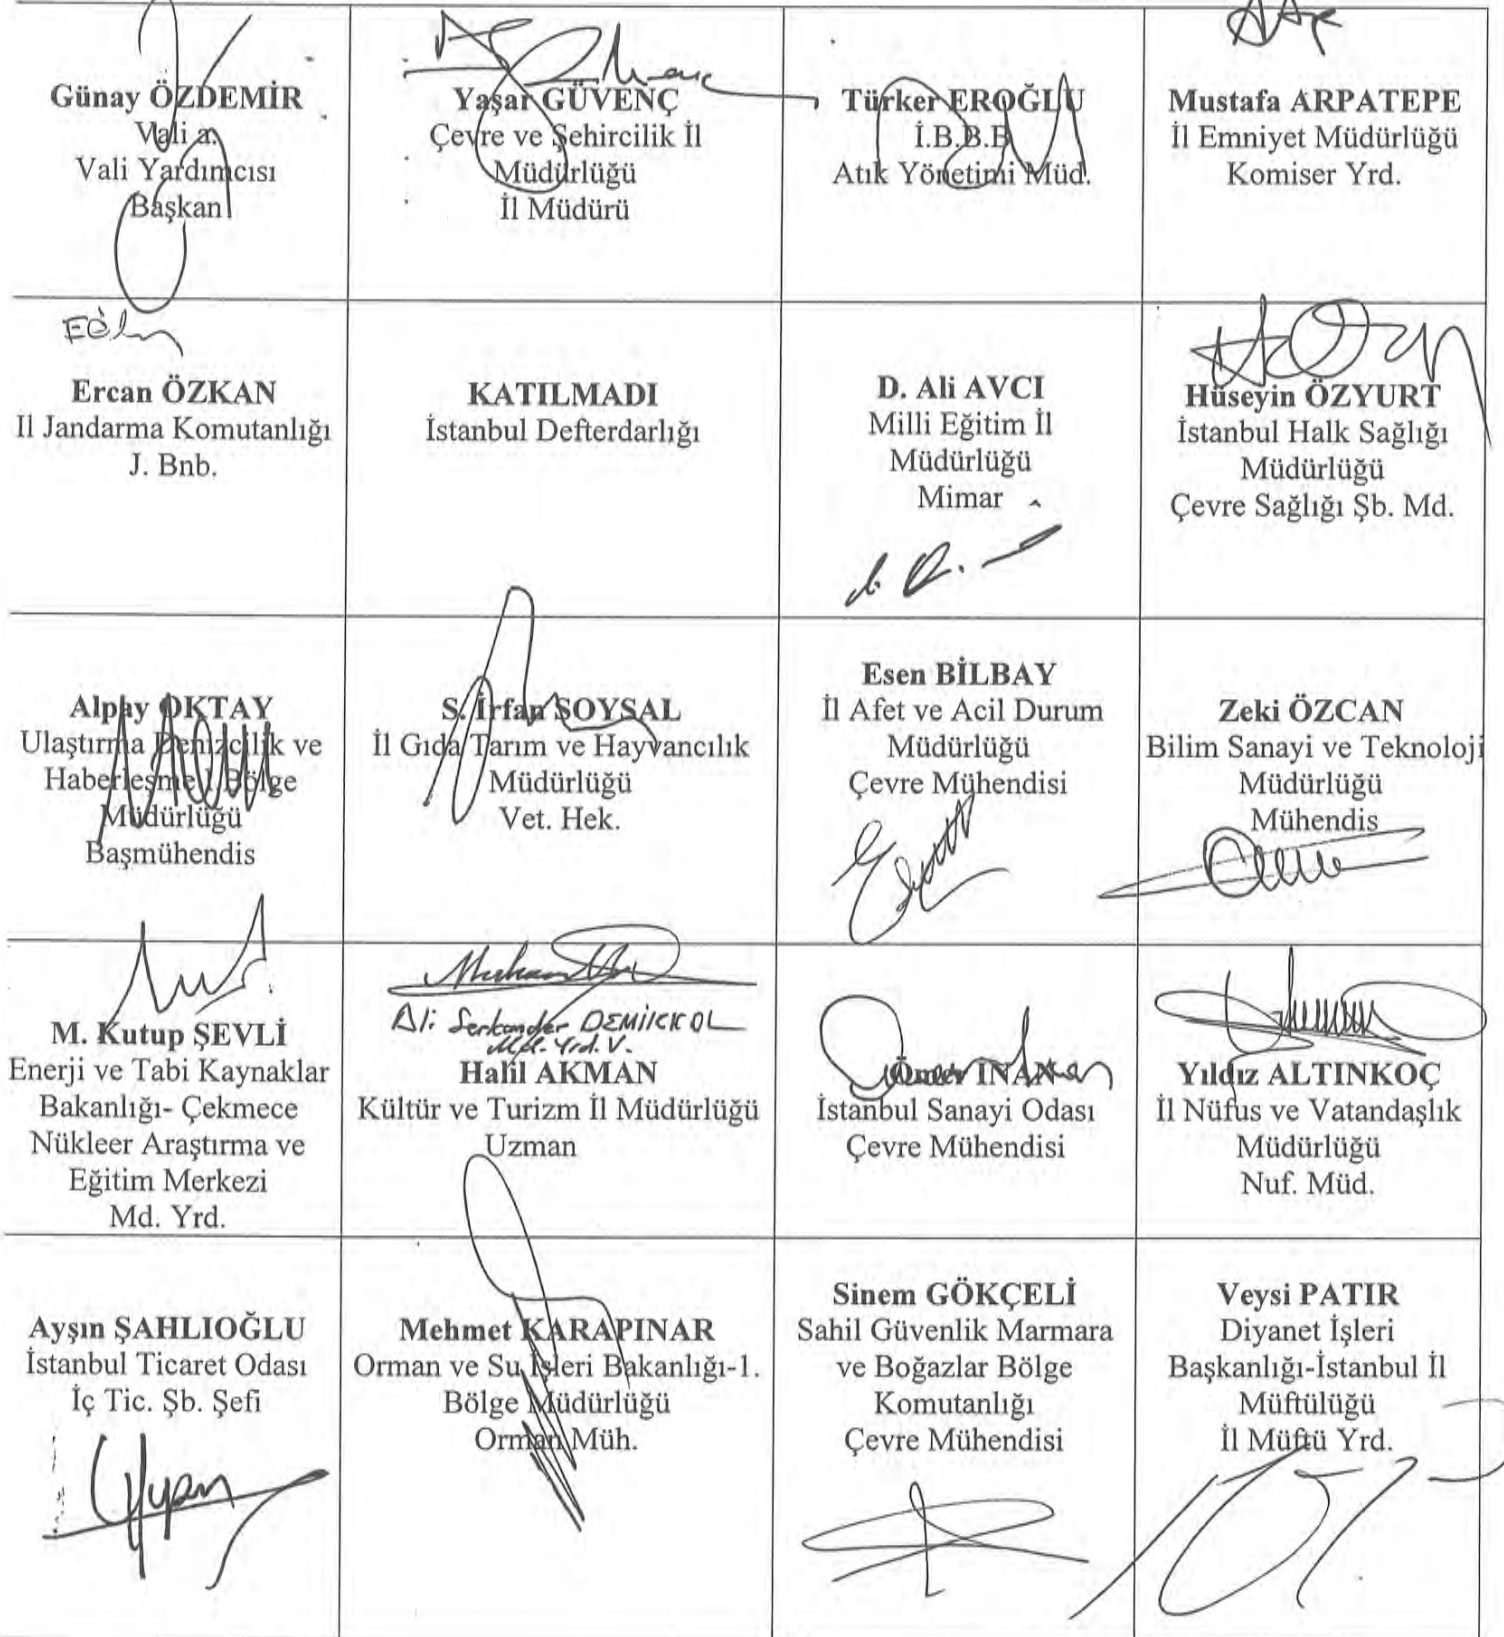 Günay ÖZDEMİR
Vali a.
Vali Yardımcısı
Başkan
Yaşar GÜVENÇ
Çevre ve Şehircilik İl
Müdürlüğü
İl Müdürü
Türker EROĞLU
İ.B.B.B
Atık Yönetimi Müd.
Mustafa ARPATEPE
İl Emniyet Müdürlüğü
Komiser Yrd.
Ercan ÖZKAN
Il Jandarma Komutanlığı
J. Bnb.
KATILMADI
İstanbul Defterdarlığı
D. Ali AVCI
Milli Eğitim İl
Müdürlüğü
Mimar
Hüseyin ÖZYURT
İstanbul Halk Sağlığı
Müdürlüğü
Çevre Sağlığı Şb. Md.
Alpay OKTAY
Ulaştırma Denizcilik ve
Haberleşme Bölge
Müdürlüğü
Başmühendis
S. İrfan SOYSAL
İl Gıda Tarım ve Hayvancılık
Müdürlüğü
Vet. Hek.
Esen BİLBAY
İl Afet ve Acil Durum
Müdürlüğü
Çevre Mühendisi
Zeki ÖZCAN
Bilim Sanayi ve Teknoloji
Müdürlüğü
Mühendis
M. Kutup ŞEVLİ
Enerji ve Tabi Kaynaklar
Bakanlığı- Çekmece
Nükleer Araştırma ve
Eğitim Merkezi
Md. Yrd.
Ali
Yrd. V.
Halil AKMAN
Kültür ve Turizm İl Müdürlüğü
Uzman
Ömer İNAN
İstanbul Sanayi Odası
Çevre Mühendisi
Yıldız ALTINKOÇ
İl Nüfus ve Vatandaşlık
Müdürlüğü
Nuf. Müd.
Ayşın ŞAHLIOĞLU
İstanbul Ticaret Odası
İç Tic. Şb. Şefi
Mehmet KARAPINAR
Orman ve Su İşleri Bakanlığı-1.
Bölge Müdürlüğü
Orman Müh.
Sinem GÖKÇELİ
Sahil Güvenlik Marmara
ve Boğazlar Bölge
Komutanlığı
Çevre Mühendisi
Veysi PATIR
Diyanet İşleri
Başkanlığı-İstanbul İl
Müftülüğü
İl Müftü Yrd.